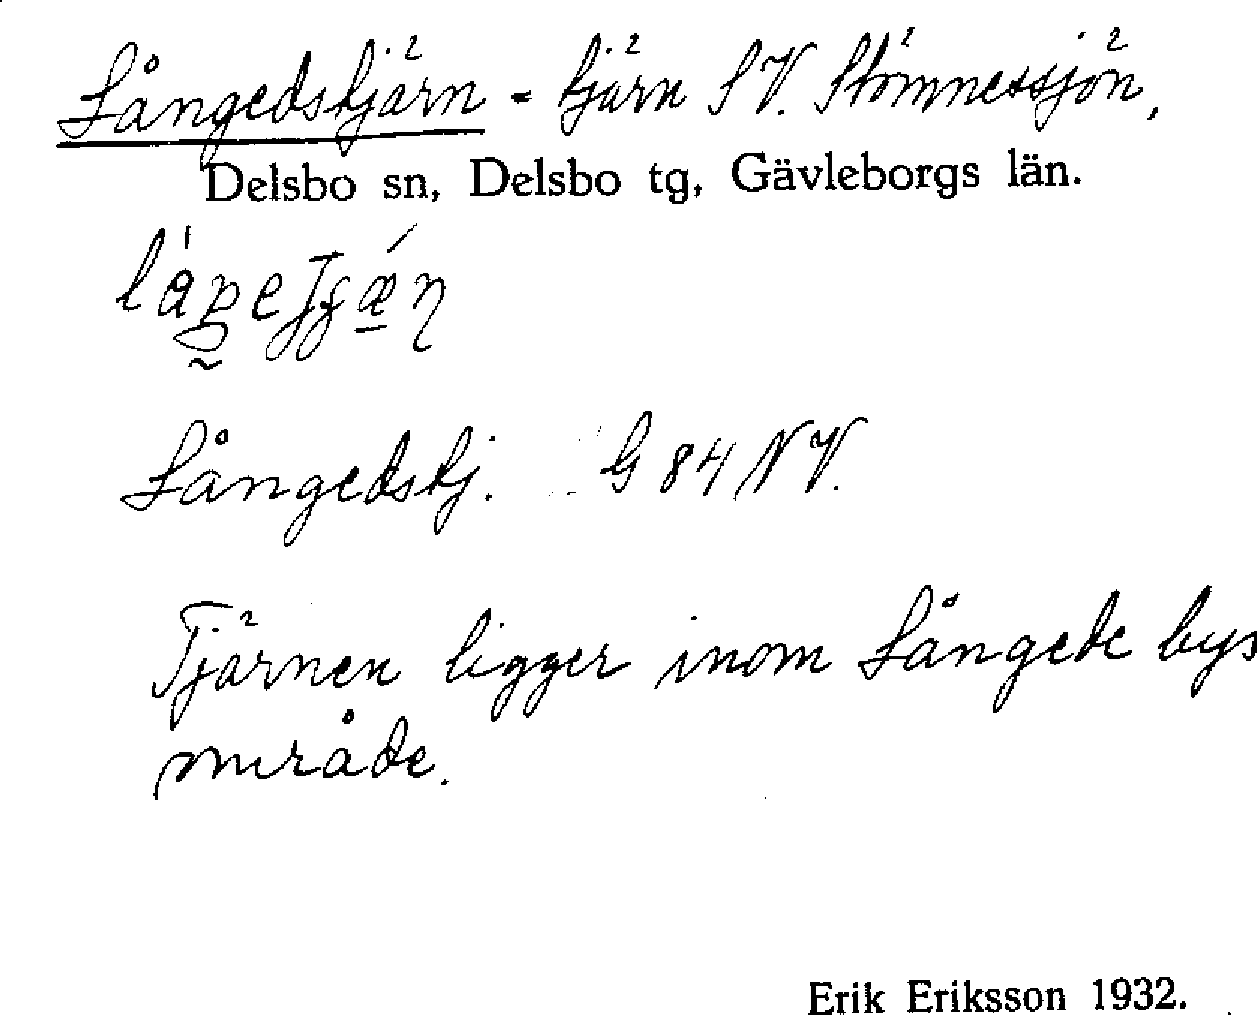 Långedstjärn - tjärn SV. Stömnessjön,
Delsbo sn, Delsbo tg, Gävleborgs län.
Långedstj. G 84 NV.
Tjärnen ligger inom Långede bys
område.
Erik Eriksson 1932.